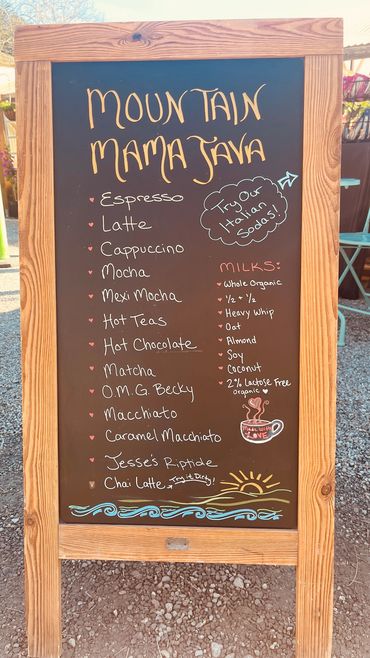 MOUNTAIN
MAMA JAVA
Espresso
Latte
Cappuccino
Mocha
Mexi Mocha
Hot Teas
Hot Chocolate
Matcha
O.M.G. Becky
Macchiato
Caramel Macchiato
Jesse's Riptide
Chai Latte → Try it Dirty!
Try Our
Italian
Sodas!
MILKS:
Whole Organic
½ + ½
Heavy Whip
Oat
Almond
Soy
Coconut
2% Lactose Free
organic
Made with
LOVE